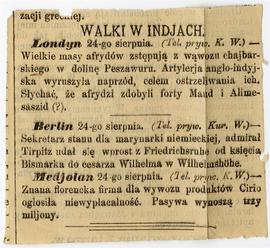 zacji greckiej.
WALKI W INDJACH.
Londyn 24-go sierpnia. (Tel. pryw. K. W.)—
Wielkie masy afrydów zstępują z wąwozu chajbar-
skiego w dolinę Peszawuru. Artylerja anglo-indyj-
ska wyruszyła naprzód, celem ostrzeliwania ich.
Słychać, że afrydzi zdobyli forty Maud i Alime-
saszid (?).
Berlin 24-go sierpnia. (Tel. pryw. Kur. W.)—
Sekretarz stanu dla marynarki niemieckiej, admirał
Tirpitz udał się wprost z Friedrichsruhe od księcia
Bismarka do cesarza Wilhelma w Wilhelmshöhe.
Medjolan 24-go sierpnia. (Tel. pryw. K. W.)—
Znana florencka firma dla wywozu produktów Cirio
ogłosiła niewypłacalność. Pasywa wynoszą trzy
miljony.